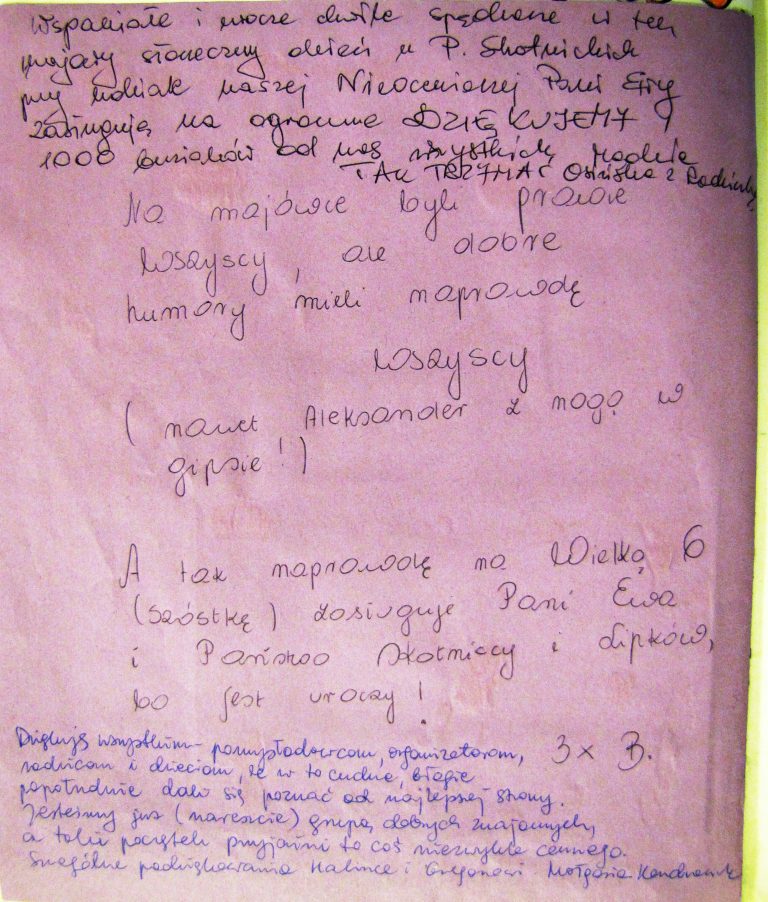 Wspaniałe i urocze chwile spędzone w ten
majowy słoneczny dzień u P. Skotnickich
przy udziale naszej Nieocenionej Pani Ewy
zasługują na ogromne DZIĘKUJEMY!
1000 buziaków od nas wszystkich
TAK TRZYMAĆ z Rodzinką
Na majówce byli prawie
wszyscy, ale dobre
humory mieli naprawdę
wszyscy
(nawet Aleksander z nogą w
gipsie!)
A tak naprawdę na Wielką 6
(szóstkę) zasługuje Pani Ewa
i Państwo Skotniccy i Lipków,
bo jest uroczy!
Dziękuję wszystkim pomysłodawcom, organizatorom, 3 x B.
rodzicom i dzieciom, że w to cudne, błogie
popołudnie dało się poznać od najlepszej strony.
Jesteśmy już (nareszcie) grupą dobrych znajomych,
a takie początki przyjaźni to coś niezwykle cennego.
Szczególne podziękowania Halince i Małgosia